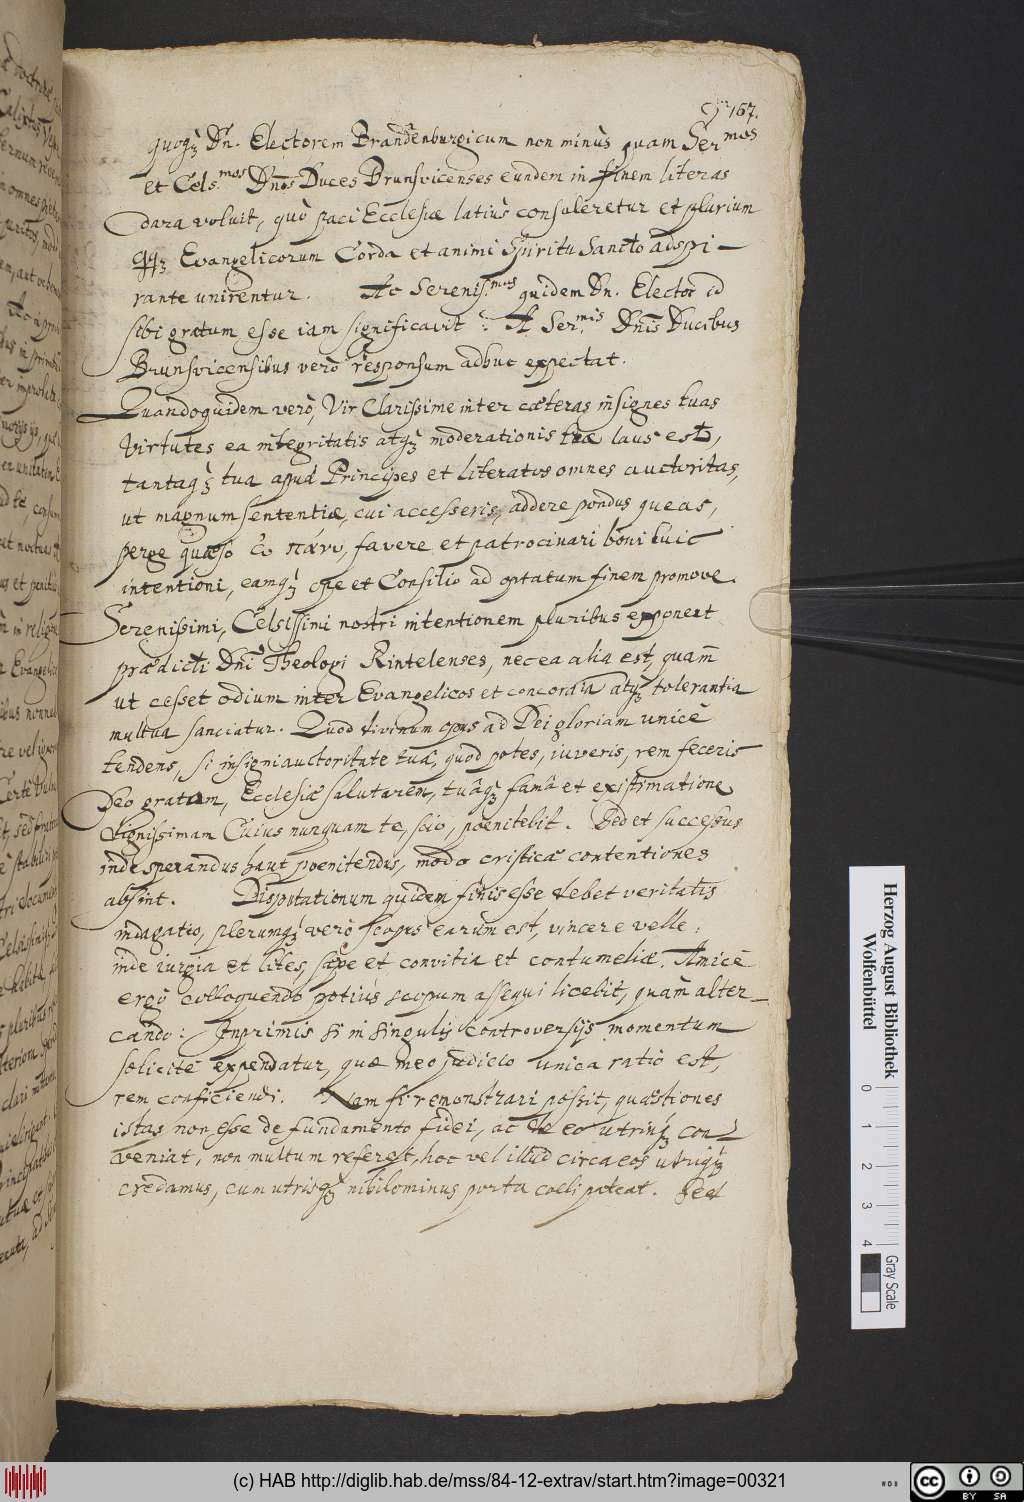 167.
quoqȝ Dn. Electorem Brandenburgicum non minùs quam Ser.mos
et Cels.mos Dnos Duces Brunsvicenses eundem in finem literas
dara voluit, quò paci Ecclesiæ latiùs consuleretur et plurium
qqȝ Evangelicorum Corda et animi Spiritu Sancto adspi-
rante unirentur. Ac Serenis.mus quidem Dn. Elector id
sibi gratum esse iam significavit: A Ser.mis Dnis Ducibus
Brunsvicensibus verò responsum adhuc expectat.
Quandoquidem verò, Vir Clarissime inter cæteras insignes tuas
Virtutes ea integritatis atqȝ moderationis tuæ laus est,
tantaqȝ tua apud Principes et literatos omnes auctoritas,
ut magnum sententiæ, cui accesseris, addere pondus queas,
perge quæso ὦ πάνυ, favere et patrocinari boni huic
intentioni, eamqȝ ope et Consilio ad optatum finem promove.
Serenissimi, Celsissimi nostri intentionem pluribus exponent
prædicti Dni Theologi Rintelenses, nec ea alia est, quam
ut cesset odium inter Evangelicos et concordia atqȝ tolerantia
mutua sanciatur. Quod divinum opus ad Dei gloriam unicè
tendens, si insigni auctoritate tuâ, quod potes, iuveris, rem feceris
Deo gratam, Ecclesiæ salutarem, tuâqȝ famâ et existimatione
dignissimam Cuius nunquam te, scio, poenitebit. Sed et successus
inde sperandus haut poenitendus, modo eristicæ contentiones
absint. Disputationum quidem finis esse debet veritatis
indagatio, plerumqȝ verò scopus earum est, vincere velle:
inde iurgia et lites, sæpe et convitia et contumeliæ. Amicè
ergò colloquendo potiùs scopum assequi licebit, quàm alter-
cando: Inprimis si in singulis Controversijs momentum
solicitè expendatur, quæ meo judicio unica ratio est,
rem conficiendi. Nam si remonstrari possit, quæstiones
istas non esse de fundamento fidei, ac de eo utrinqȝ con-
veniat, non multum referet, hoc vel illud circa eos utriqȝ
credamus, cum utrisqȝ nihilominus porta coeli pateat. Sed
Herzog August Bibliothek
Wolfenbüttel
0 1 2 3 4
Gray Scale
(c) HAB http://diglib.hab.de/mss/84-12-extrav/start.htm?image=00321
cc BY SA